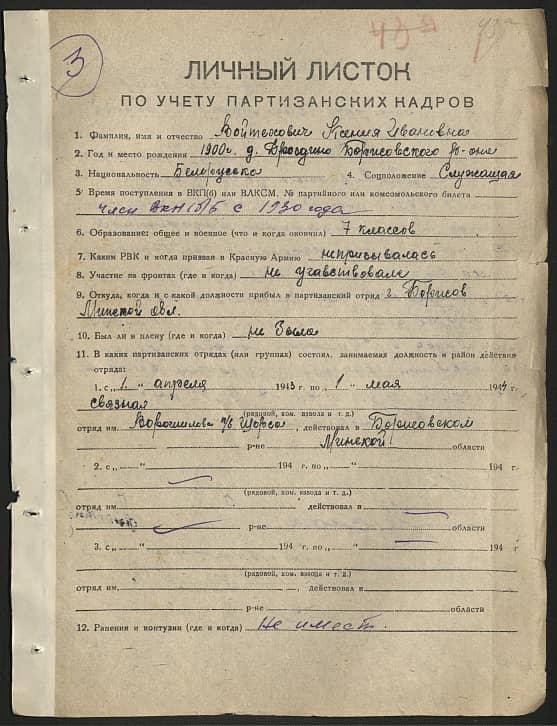 3
ЛИЧНЫЙ ЛИСТОК
ПО УЧЕТУ ПАРТИЗАНСКИХ КАДРОВ
1. Фамилия, имя и отчество Войтехович Ксения Ивановна
2. Год и место рождения 1900г. д. Броздино Борисовского р-она
3. Национальность Белоруска 4. Соцположение Служащая
5. Время поступления в ВКП(б) или ВЛКСМ, № партийного или комсомольского билета
член ВКП(б)Б с 1930 года
6. Образование: общее и военное (что и когда окончил) 7 классов
7. Каким РВК и когда призван в Красную Армию непризывалась
8. Участие на фронтах (где и когда) не учавствовала
9. Откуда, когда и с какой должности прибыл в партизанский отряд г. Борисов
Минской обл.
10. Был ли в плену (где и когда) не была
11. В каких партизанских отрядах (или группах) состоял, занимаемая должность и район действия
отряда:
1. с „1 “ апреля 1943 г. по „1 “ мая 1944 г.
связная
(рядовой, ком. взвода и т. д.)
отряд им. Ворошилова п/б Щорса, действовал в Борисовском
р-не Минской области
2. с „ “ 194 г. по „ “ 194 г.
(рядовой, ком. взвода и т. д.)
отряд им. действовал в
р-не области
3. с „ “ 194 г. по „ “ 194 г.
(рядовой, ком. взвода и т. д.)
отряд им. действовал в
р-не области
12. Ранения и контузии (где и когда) Не имеет.